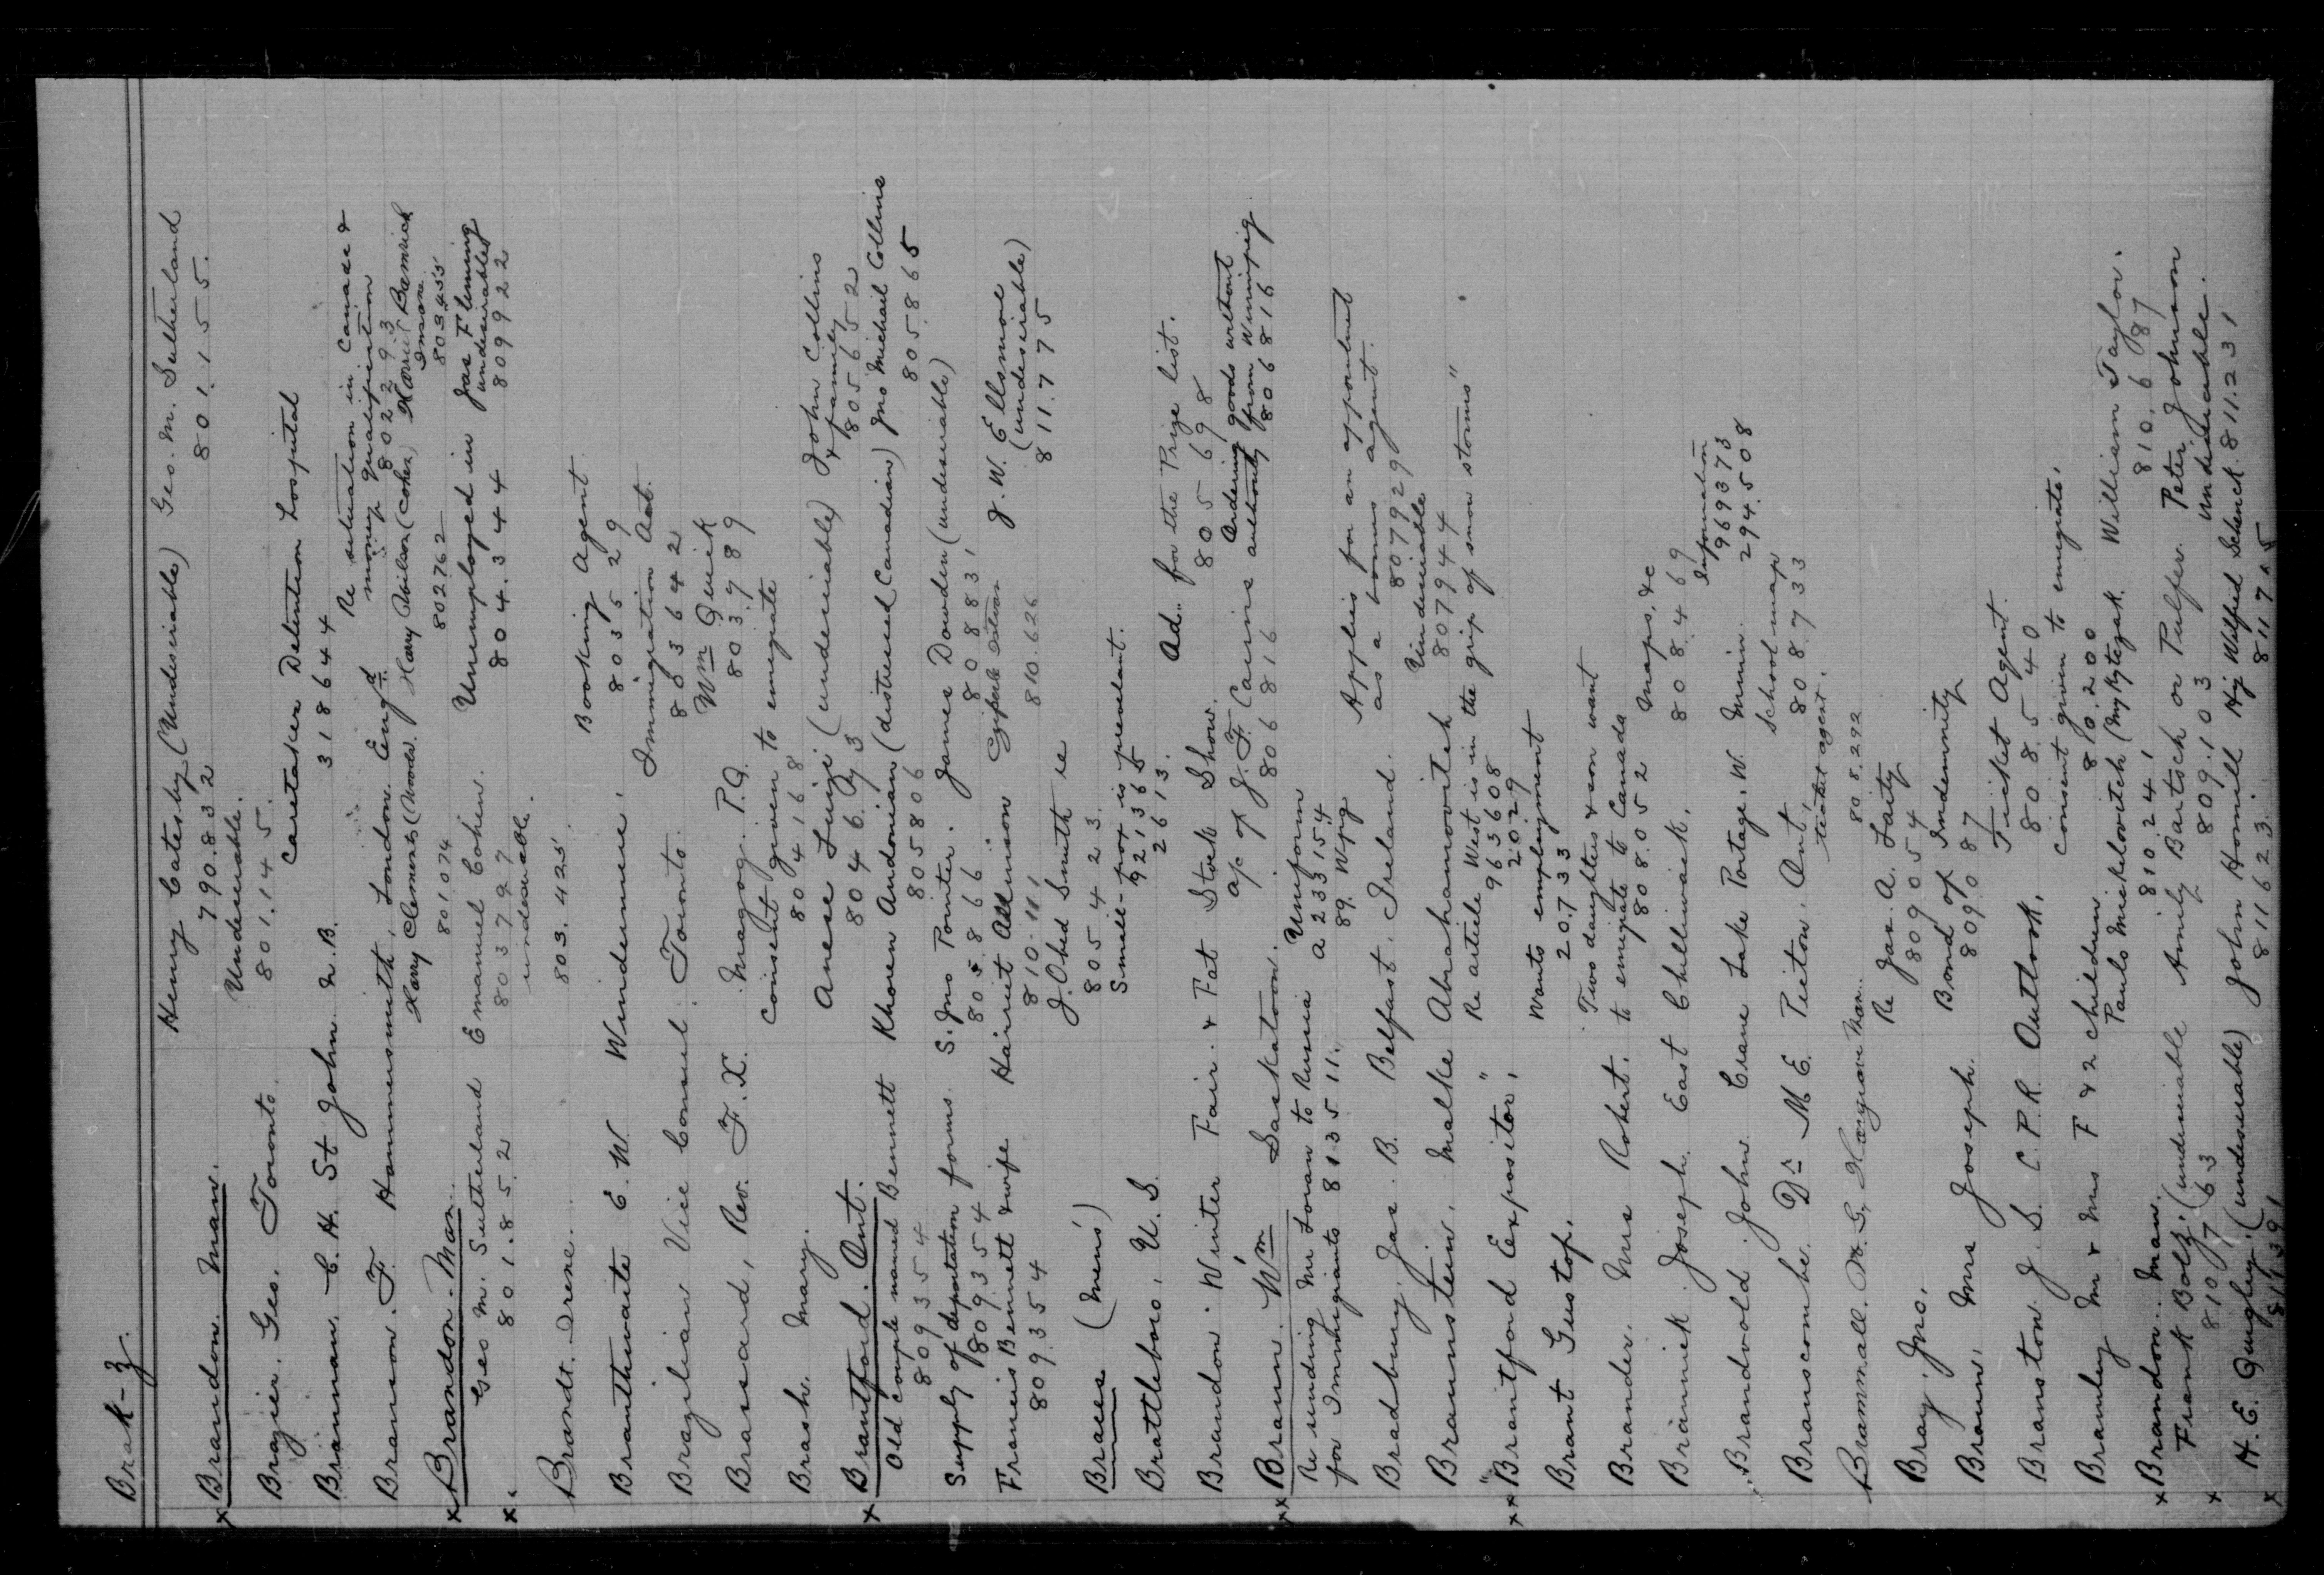 Brak-z.
x Brandon. Man. Henry Catesby (Undesirable) Geo. M. Sutherland
790.832 801.155.
Brazier. Geo. Toronto. Undesirable.
801.145.
Brannan C.H. St John N.B. Caretaker Detention Hospital
318644
Branson. F. Hammersmith, London. Engd. Re situation in Canada &
money qualification
802293
x Brandon. Man. Harry Clements (Woods). Harry Abilson (Cohen) Harriet
801074 802762 Insane 803455
x " Geo M. Sutherland Emanuel Cohen. Unemployed in Jas Fleming
801.852 803797 804.344 undesirable
undesirable. 809922
Brandt. Irene. 803.425.
Branthwaite E. W. Windermere, Booking Agent
803529
Brazilian Vice Consul. Toronto. Immigration Act.
803642
Brassard, Rev. F. X. Magog. P.Q. Wm Quirk
803789
Brash. Mary. Consent given to emigrate
804168
x Brantford. Ont. Anese Luigi (undesirable) John Collins
804693 & family
805652
Old couple named Bennett Khoren Andonian (distressed Canadian) Jno Michail Collins
809354 805806 805865
Supply of deportation forms. S. Jno Pointer. James Dowden (undesirable)
809354 805866 808831
Francis Bennett & wife Harriet Allinson J. W. Ellsmore
809354 810.111 810.626 (undesirable)
811.775
Braces (Mens') J. Obed Smith re
805423.
Brattleboro, U.S. Small-pox is prevalent.
921365
2613.
Brandon. Winter Fair & Fat Stock Show. Ad. for the Prize list.
805698
xx Braun. Wm Saskatoon. a/c of J. F. Cairns Ordering goods without
806816 authority from Winnipeg
806816
Re sending Mr Loran to Russia Uniform
for Immigrants 813511. a 233154
89. Wpg
Bradbury. Jas. B. Belfast. Ireland. Applies for an appointment
as a bonus agent.
807929
Braunstein, Malke Abrahamovitch Undesirable
807944
xx "Brantford Expositor", Re article "West is in the grip of snow storms"
963608
2029
Brant Gustop. Wants employment
20733
Brander. Mrs Robert. Two daughters & son want
to emigrate to Canada
808.052
Brannick. Joseph. East Chilliwack. Maps. &c
808469
Brandvold John Crane Lake Portage. W. Minn. Information
969373
294.508
Branscombe. Dr M. E. Picton. Ont. School map
808.733
Brammall. W. G. Hargrave Man. ticket agent.
808.292
Bray. Jno. Re Jas. A. Laity
809054
Braun. Mrs Joseph. Bond of Indemnity
809.087
Branston J. S. C.P.R. Outlook, Ticket Agent.
808.540
Bramley Mr & Mrs F & 2 children consent given to emigrate.
810.200
x Brandon. Man. Paulo Micklovitch (Mykytczak William Taylor.
810241 810,687
x Frank Bolz. (undesirable Amily Bartsch or Pulfer. Peter Johnson
810763 809.103 undesirable.
x H. E. Quigley. (undesirable) John Hornill Hy Wilfred Schenck. 811.231
811623.